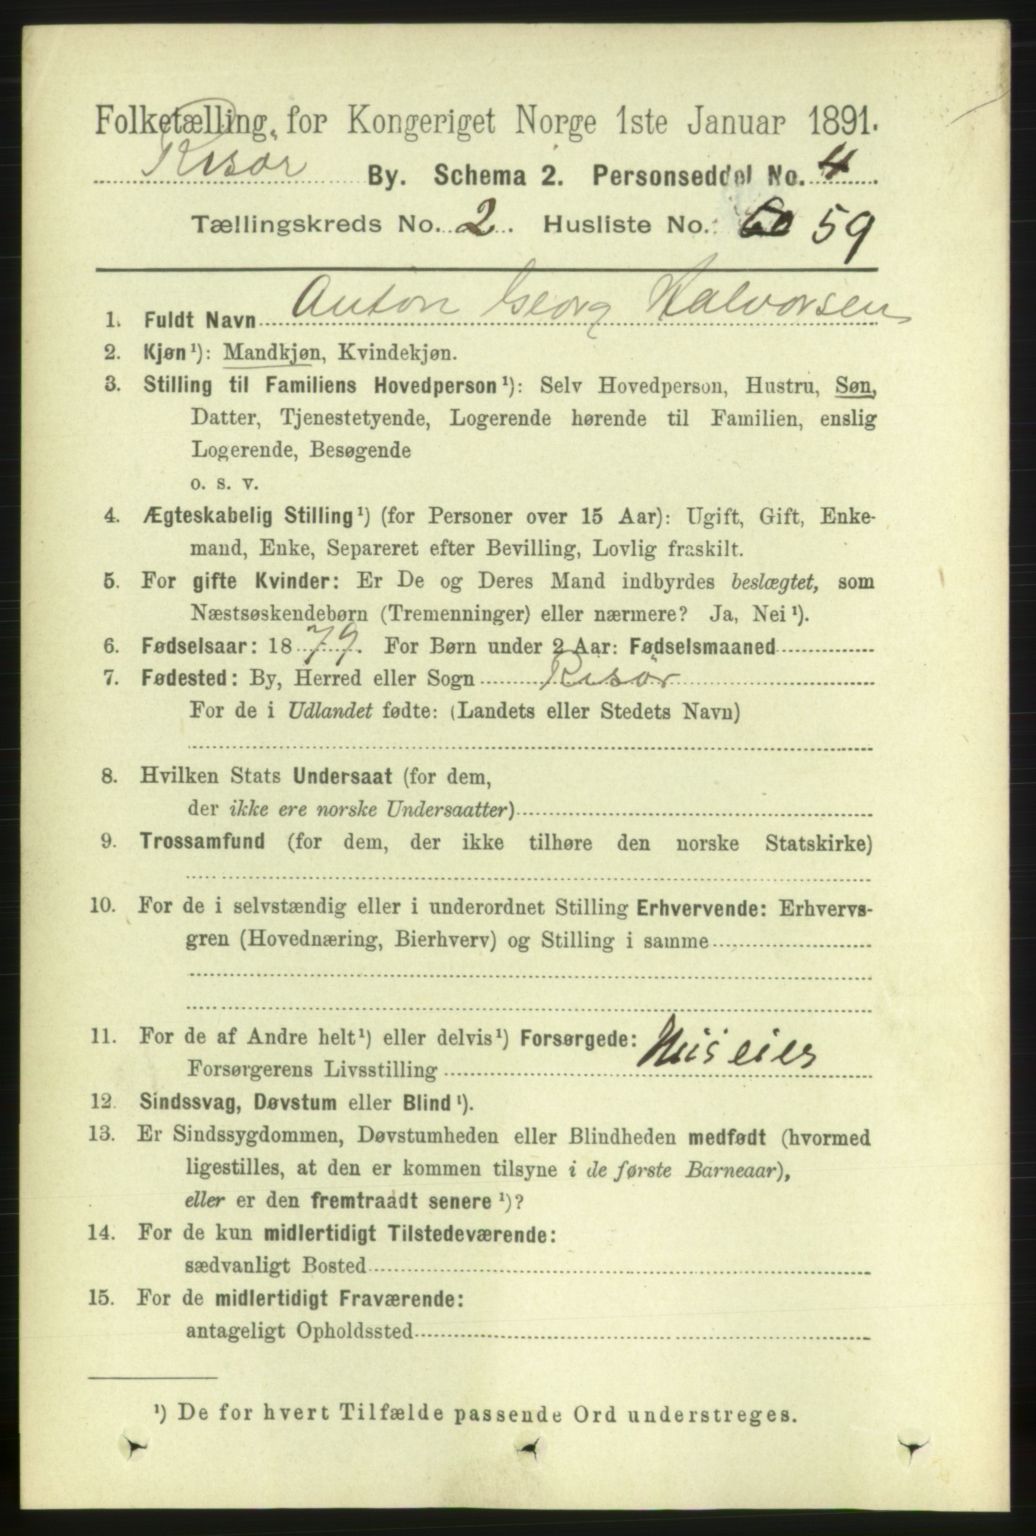 Folketælling for Kongeriget Norge 1ste Januar 1891.
Risør By. Schema 2. Personseddel No. 4
Tællingskreds No. 2. Husliste No. 60 59
1. Fuldt Navn Anton Georg Halvorsen
2. Kjøn¹): Mandkjøn, Kvindekjøn.
3. Stilling til Familiens Hovedperson¹): Selv Hovedperson, Hustru, Søn,
Datter, Tjenestetyende, Logerende hørende til Familien, enslig
Logerende, Besøgende
o. s. v.
4. Ægteskabelig Stilling¹) (for Personer over 15 Aar): Ugift, Gift, Enke-
mand, Enke, Separeret efter Bevilling, Lovlig fraskilt.
5. For gifte Kvinder: Er De og Deres Mand indbyrdes beslægtet, som
Næstsøskendebørn (Tremenninger) eller nærmere? Ja, Nei¹).
6. Fødselsaar: 1879. For Børn under 2 Aar: Fødselsmaaned
7. Fødested: By, Herred eller Sogn Risør
For de i Udlandet fødte: (Landets eller Stedets Navn)
8. Hvilken Stats Undersaat (for dem,
der ikke ere norske Undersaatter)
9. Trossamfund (for dem, der ikke tilhøre den norske Statskirke)
10. For de i selvstændig eller i underordnet Stilling Erhvervende: Erhvervs-
gren (Hovednæring, Bierhverv) og Stilling i samme
11. For de af Andre helt¹) eller delvis¹) Forsørgede:
Forsørgerens Livsstilling Huseier
12. Sindssvag, Døvstum eller Blind¹).
13. Er Sindssygdommen, Døvstumheden eller Blindheden medfødt (hvormed
ligestilles, at den er kommen tilsyne i de første Barneaar),
eller er den fremtraadt senere¹)?
14. For de kun midlertidigt Tilstedeværende:
sædvanligt Bosted
15. For de midlertidigt Fraværende:
antageligt Opholdssted
¹) De for hvert Tilfælde passende Ord understreges.